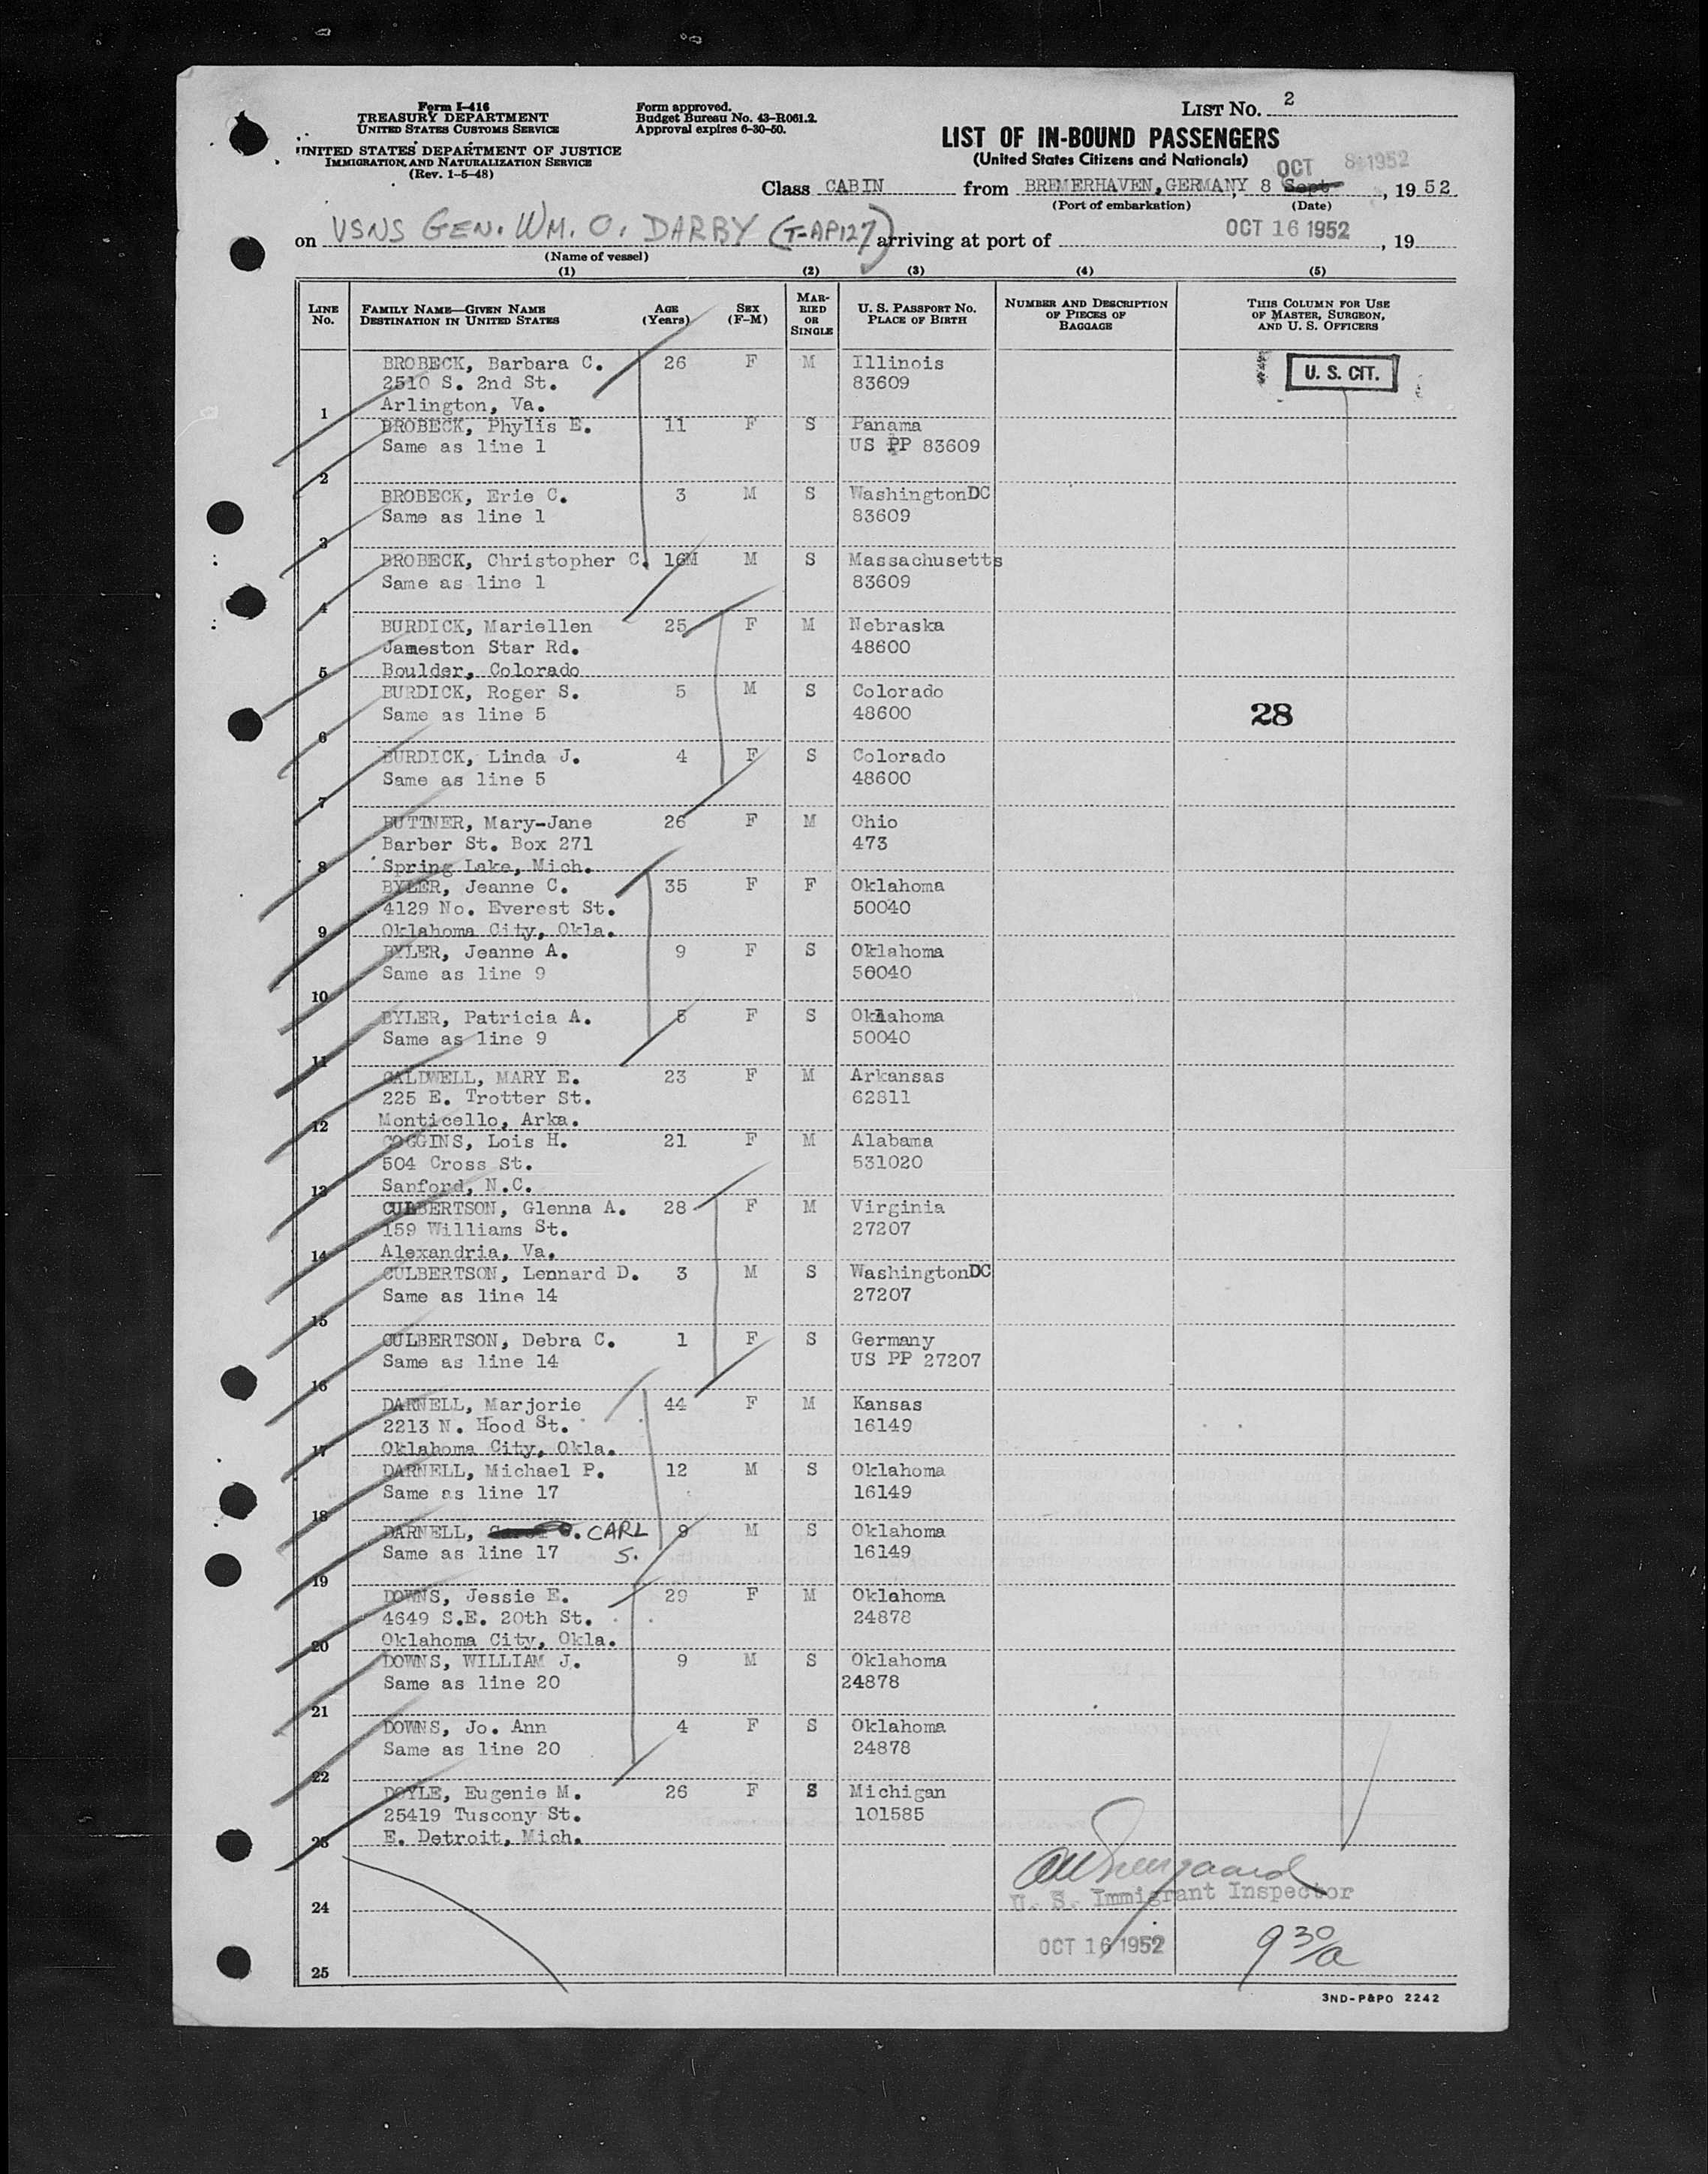 Form I-416
TREASURY DEPARTMENT
UNITED STATES CUSTOMS SERVICE
UNITED STATES DEPARTMENT OF JUSTICE
IMMIGRATION AND NATURALIZATION SERVICE
(Rev. 1-5-48)
Form approved.
Budget Bureau No. 43-R061.2.
Approval expires 6-30-50.
LIST No. 2
LIST OF IN-BOUND PASSENGERS
(United States Citizens and Nationals)
OCT 8 1952
Class CABIN from BREMERHAVEN, GERMANY, 8 Sept, 1952
(Port of embarkation) (Date)
on USNS GEN. WM. O. DARBY (T-AP127) arriving at port of OCT 16 1952, 19
(Name of vessel)
(1) (2) (3) (4) (5)
LINE No. FAMILY NAME—GIVEN NAME DESTINATION IN UNITED STATES AGE (Years) SEX (F-M) MARRIED OR SINGLE U. S. PASSPORT NO. PLACE OF BIRTH NUMBER AND DESCRIPTION OF PIECES OF BAGGAGE THIS COLUMN FOR USE OF MASTER, SURGEON, AND U. S. OFFICERS
BROBECK, Barbara C. 26 F M Illinois U. S. CIT.
2510 S. 2nd St. 83609
1 Arlington, Va.
BROBECK, Phylis E. 11 F S Panama
Same as line 1 US PP 83609
2
BROBECK, Eric C. 3 M S Washington DC
Same as line 1 83609
3
BROBECK, Christopher C. 16M M S Massachusetts
Same as line 1 83609
4
BURDICK, Mariellen 25 F M Nebraska
Jameston Star Rd. 48600
5 Boulder, Colorado
BURDICK, Roger S. 5 M S Colorado
Same as line 5 48600 28
6
BURDICK, Linda J. 4 F S Colorado
Same as line 5 48600
7
BUTTNER, Mary-Jane 26 F M Ohio
Barber St. Box 271 473
8 Spring Lake, Mich.
BYLER, Jeanne C. 35 F F Oklahoma
4129 No. Everest St. 50040
9 Oklahoma City, Okla.
BYLER, Jeanne A. 9 F S Oklahoma
Same as line 9 50040
10
BYLER, Patricia A. 5 F S Oklahoma
Same as line 9 50040
11
CALDWELL, MARY E. 23 F M Arkansas
225 E. Trotter St. 62811
12 Monticello, Arka.
COGGINS, Lois H. 21 F M Alabama
504 Cross St. 531020
13 Sanford, N.C.
CULBERTSON, Glenna A. 28 F M Virginia
159 Williams St. 27207
14 Alexandria, Va.
CULBERTSON, Lennard D. 3 M S Washington DC
Same as line 14 27207
15
CULBERTSON, Debra C. 1 F S Germany
Same as line 14 US PP 27207
16
DARNELL, Marjorie 44 F M Kansas
2213 N. Hood St. 16149
17 Oklahoma City, Okla.
DARNELL, Michael P. 12 M S Oklahoma
Same as line 17 16149
18
DARNELL, CARL S. 9 M S Oklahoma
Same as line 17 16149
19
DOWNS, Jessie E. 29 F M Oklahoma
4649 S.E. 20th St. 24878
20 Oklahoma City, Okla.
DOWNS, WILLIAM J. 9 M S Oklahoma
Same as line 20 24878
21
DOWNS, Jo. Ann 4 F S Oklahoma
Same as line 20 24878
22
DOYLE, Eugenie M. 26 F S Michigan
25419 Tuscony St. 101585
23 E. Detroit, Mich.
U. S. Immigrant Inspector
24
OCT 16 1952 9 30/a
25
3ND-P&PO 2242